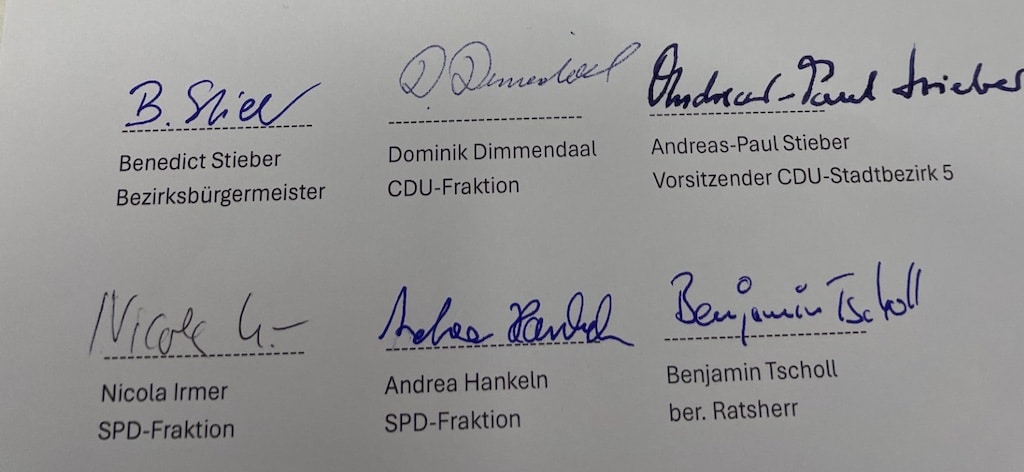 B. Stieber D Dimmendaal Andreas-Paul Stieber
Benedict Stieber Dominik Dimmendaal Andreas-Paul Stieber
Bezirksbürgermeister CDU-Fraktion Vorsitzender CDU-Stadtbezirk 5
Nicola Andrea Hankeln Benjamin Tscholl
Nicola Irmer Andrea Hankeln Benjamin Tscholl
SPD-Fraktion SPD-Fraktion ber. Ratsherr